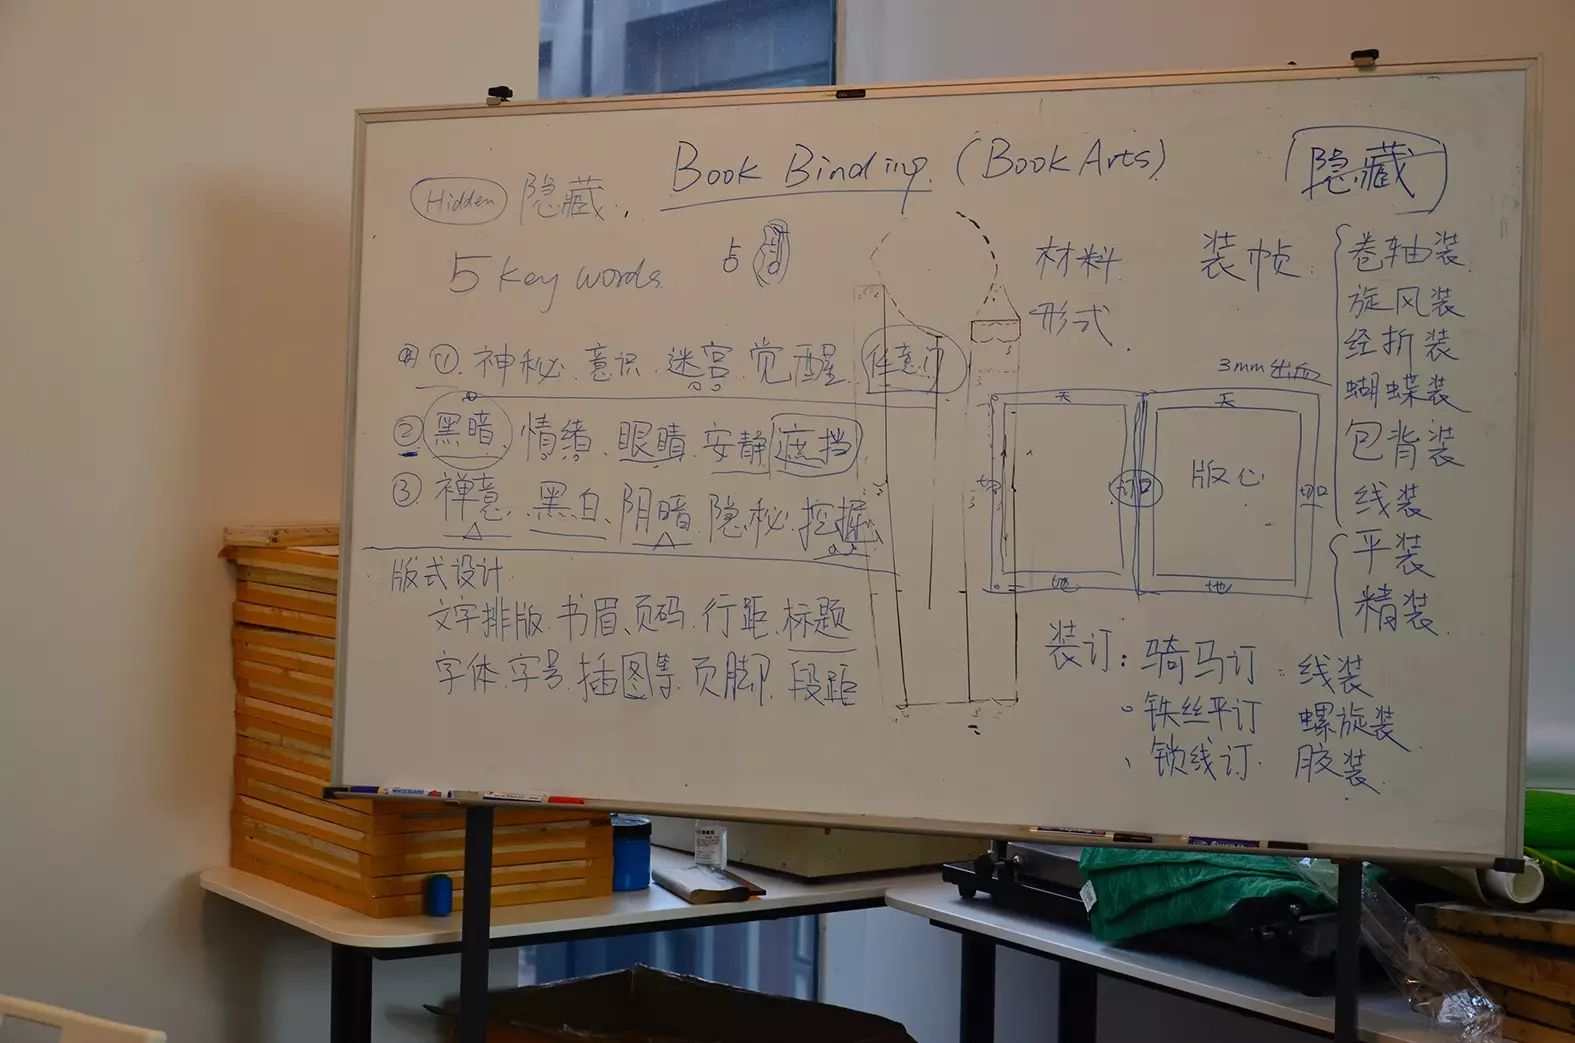 Book Binding (Book Arts)
Hidden 隐藏
隐藏
5 key words
① 神秘 意识 迷宫 觉醒 任意门
② 黑暗 情绪 眼睛 安静 遮挡
③ 禅意 黑白 阴暗 隐秘 挖掘
版式设计
文字排版 书眉、页码、行距、标题
字体 字号 插图等 页脚 段距
材料
形式
装帧
卷轴装
旋风装
经折装
蝴蝶装
包背装
线装
平装
精装
3mm 出血
天 天
切口 版心 切口
地 地
装订: 骑马订 线装
铁丝平订 螺旋装
锁线订 胶装
WHITEBOARD